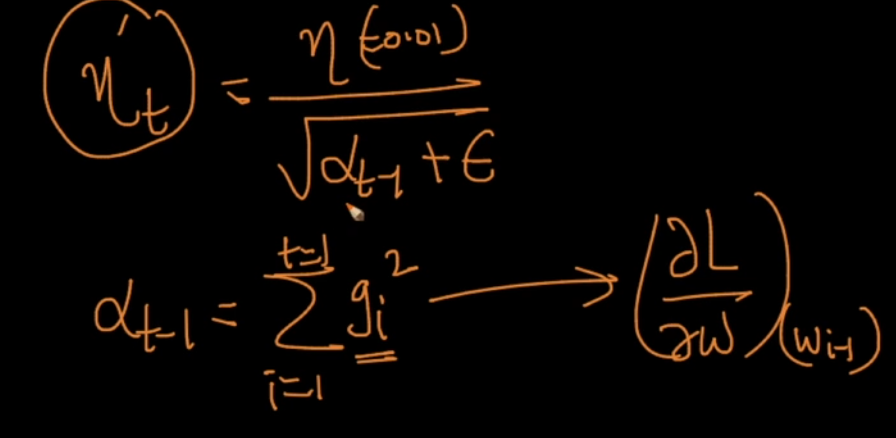 η'ₜ = η (=0.01) / √(αₜ₋₁ + ϵ)
αₜ₋₁ = ∑ᵢ₌₁ᵗ⁼¹ gᵢ² ⟶ (∂L/∂w)(wᵢ₋₁)